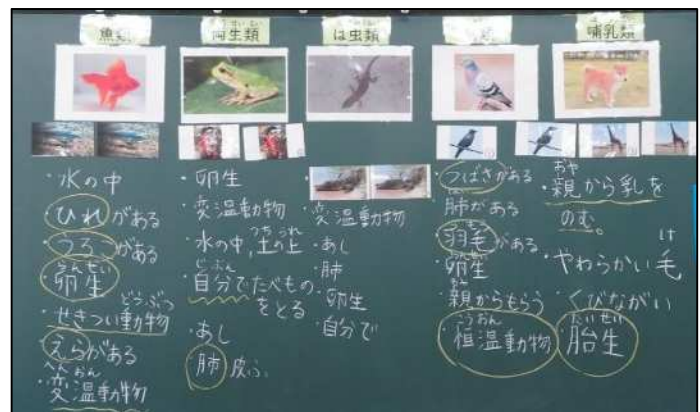 魚類
両生類
は虫類
類
哺乳類
・水の中
・ひれがある
・うろこがある
・卵生
らんせい
・せきつい動物
どうぶつ
・えらがある
・変温動物
へんおん
・卵生
・変温動物
・水の中、土の上
つち うえ
・自分でたべもの
じぶん
をとる
・あし
・肺 皮ふ
・変温動物
・あし
・肺
・卵生
・自分で
・つばさがある
・肺がある
・羽毛がある
・卵生
・親からもらう
・恒温動物
こうおん
・親から乳を
おや
のむ。
・やわらかい毛
け
・くびながい
・胎生
たいせい